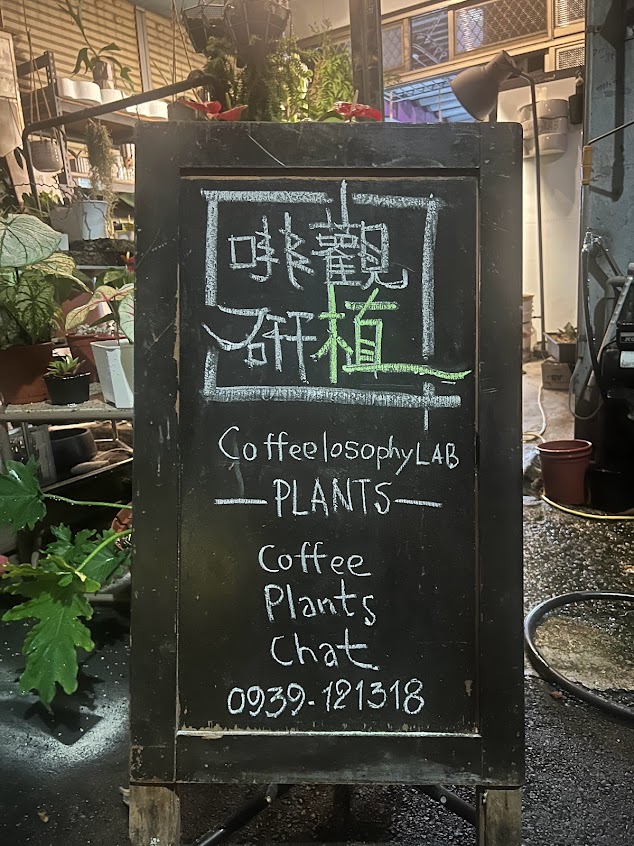 啡觀
研植
CoffeelosophyLAB
PLANTS
Coffee
Plants
Chat
0939-121318